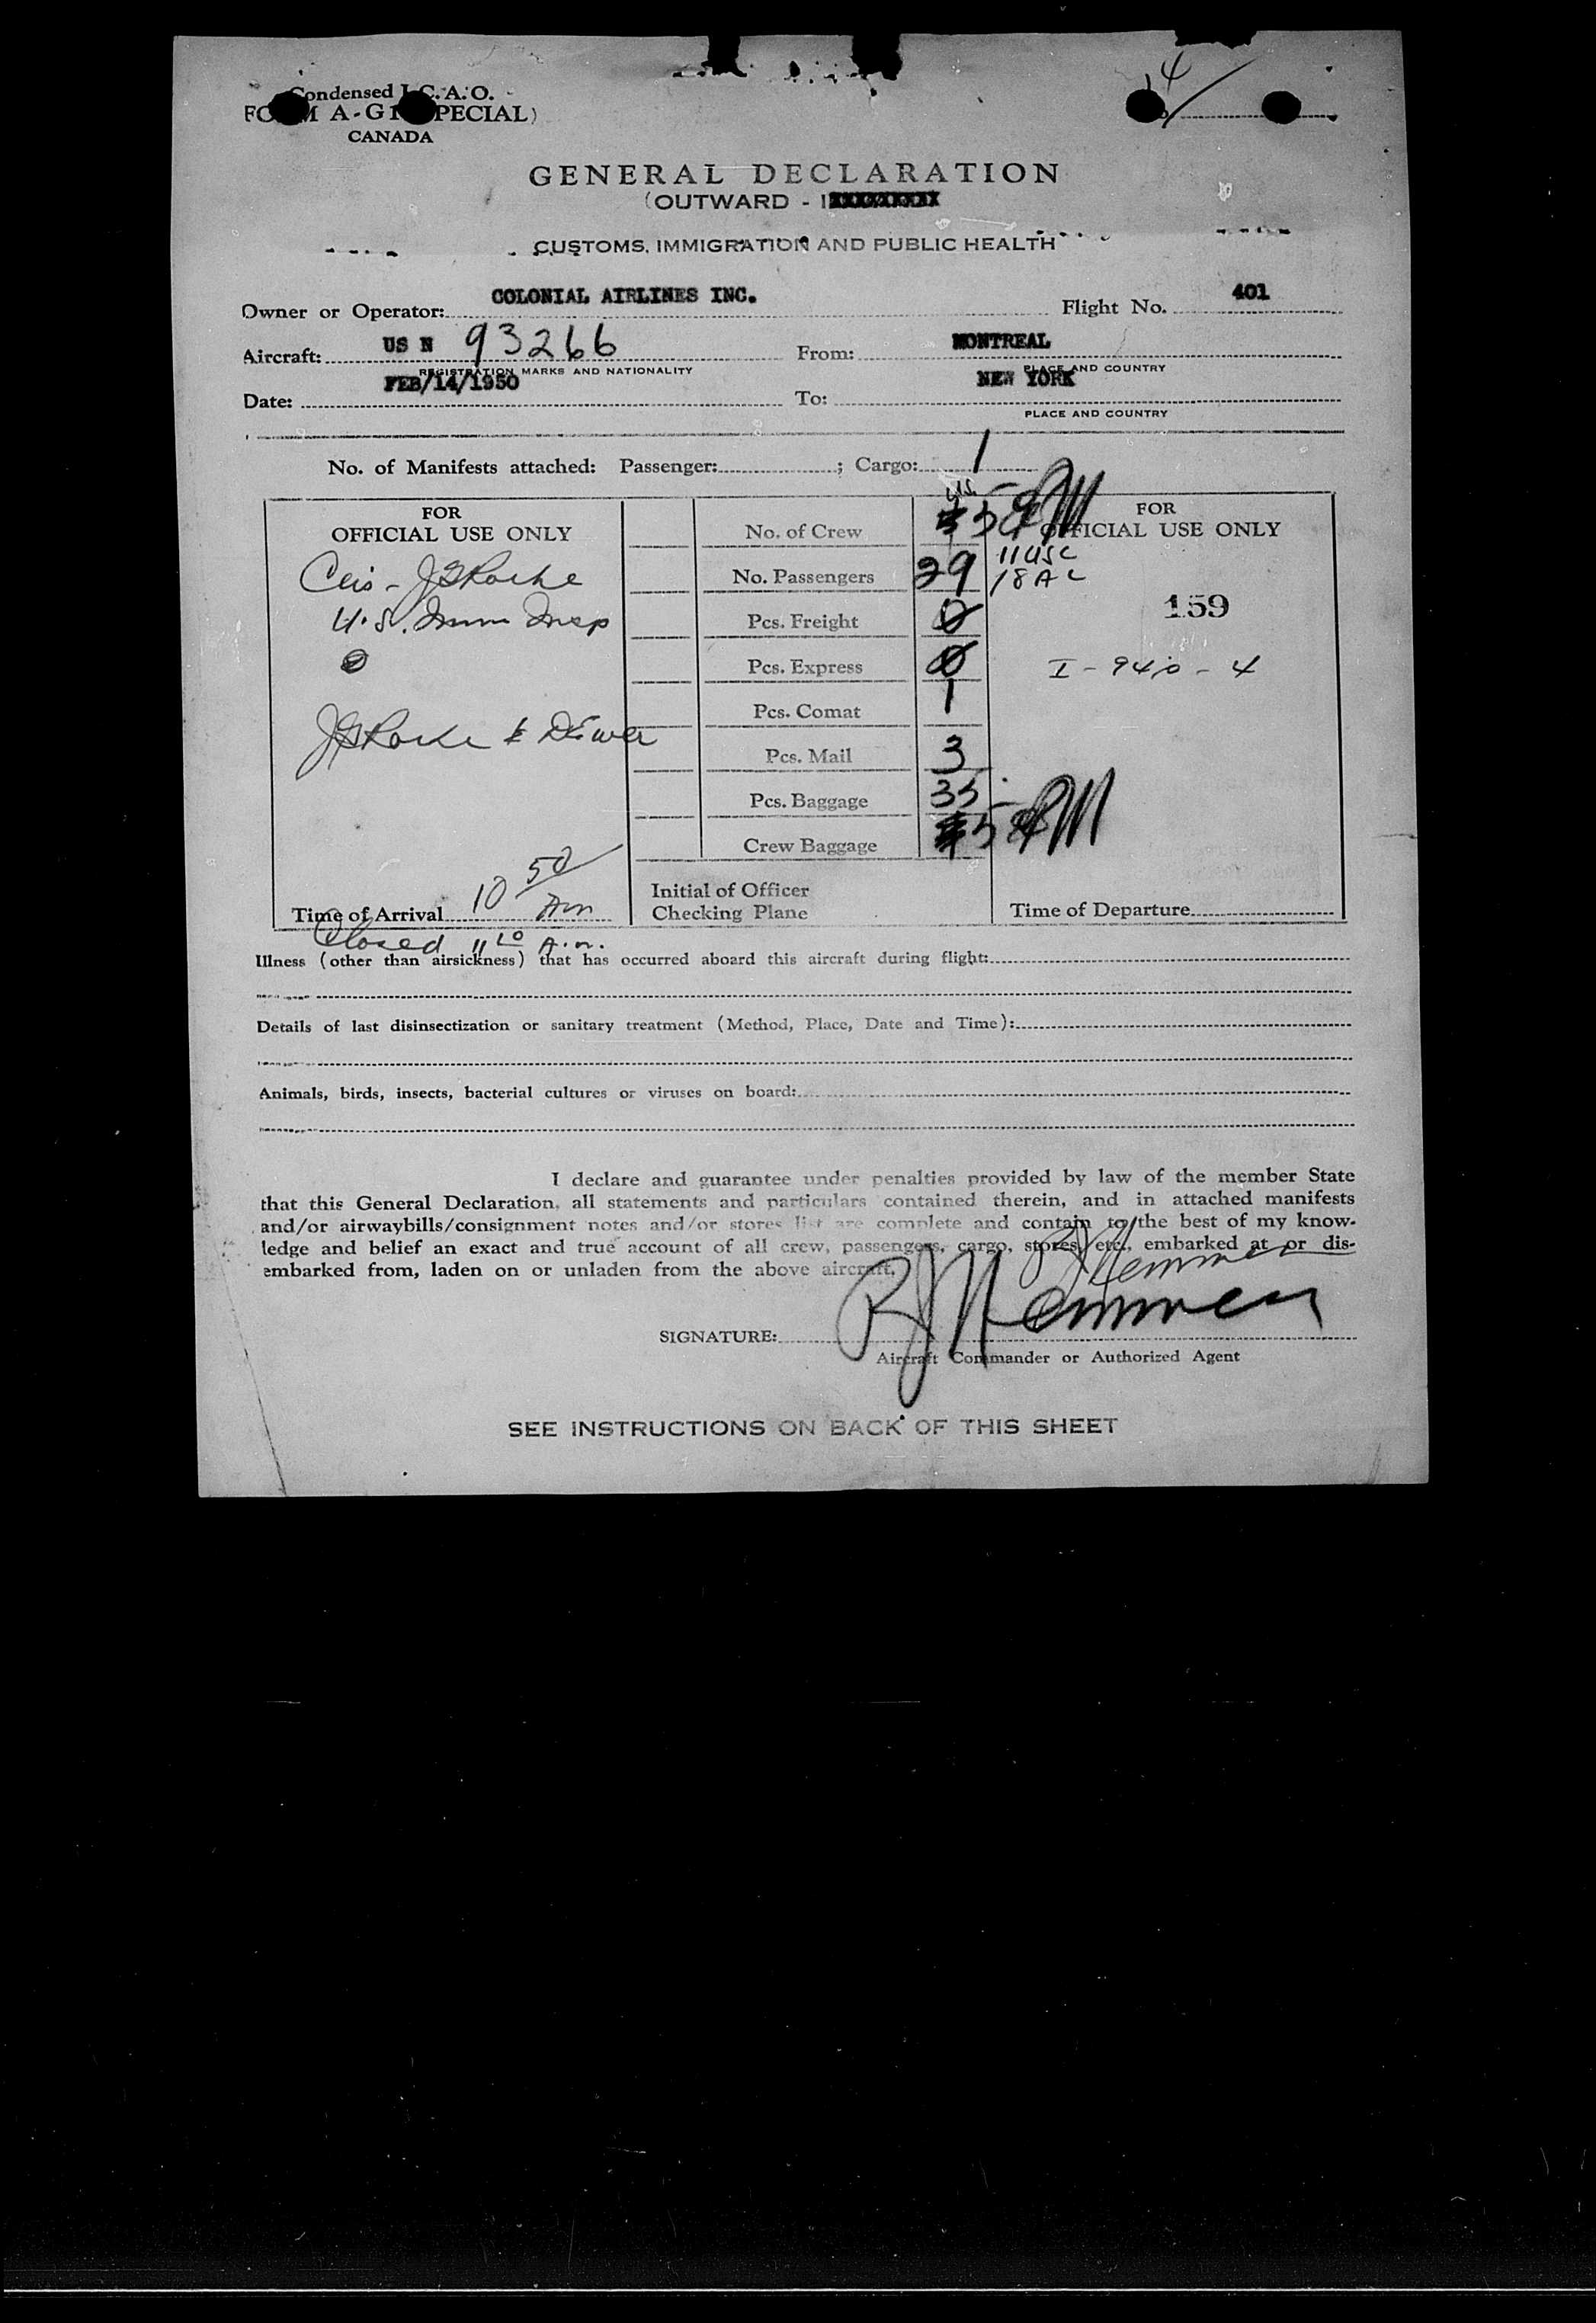 Condensed I.C.A.O.
FORM A-G1 (SPECIAL)
CANADA
4
GENERAL DECLARATION
(OUTWARD - I
CUSTOMS, IMMIGRATION AND PUBLIC HEALTH
Owner or Operator: COLONIAL AIRLINES INC. Flight No. 401
Aircraft: US N 93266 From: MONTREAL
REGISTRATION MARKS AND NATIONALITY PLACE AND COUNTRY
Date: FEB/14/1950 To: NEW YORK
PLACE AND COUNTRY
No. of Manifests attached: Passenger: ; Cargo: 1
FOR
OFFICIAL USE ONLY
U.S. Imm Insp
Time of Arrival 10 50 Am
Closed 11 10 A.m.
No. of Crew 5
No. Passengers 29
Pcs. Freight 0
Pcs. Express 0
Pcs. Comat 1
Pcs. Mail 3
Pcs. Baggage 35
Crew Baggage 5
Initial of Officer
Checking Plane
FOR
OFFICIAL USE ONLY
11 USC
18 A C
159
Time of Departure
Illness (other than airsickness) that has occurred aboard this aircraft during flight:
Details of last disinsectization or sanitary treatment (Method, Place, Date and Time):
Animals, birds, insects, bacterial cultures or viruses on board:
I declare and guarantee under penalties provided by law of the member State
that this General Declaration, all statements and particulars contained therein, and in attached manifests
and/or airwaybills/consignment notes and/or stores list are complete and contain to the best of my know-
ledge and belief an exact and true account of all crew, passengers, cargo, stores, etc., embarked at or dis-
embarked from, laden on or unladen from the above aircraft.
SIGNATURE:
Aircraft Commander or Authorized Agent
SEE INSTRUCTIONS ON BACK OF THIS SHEET